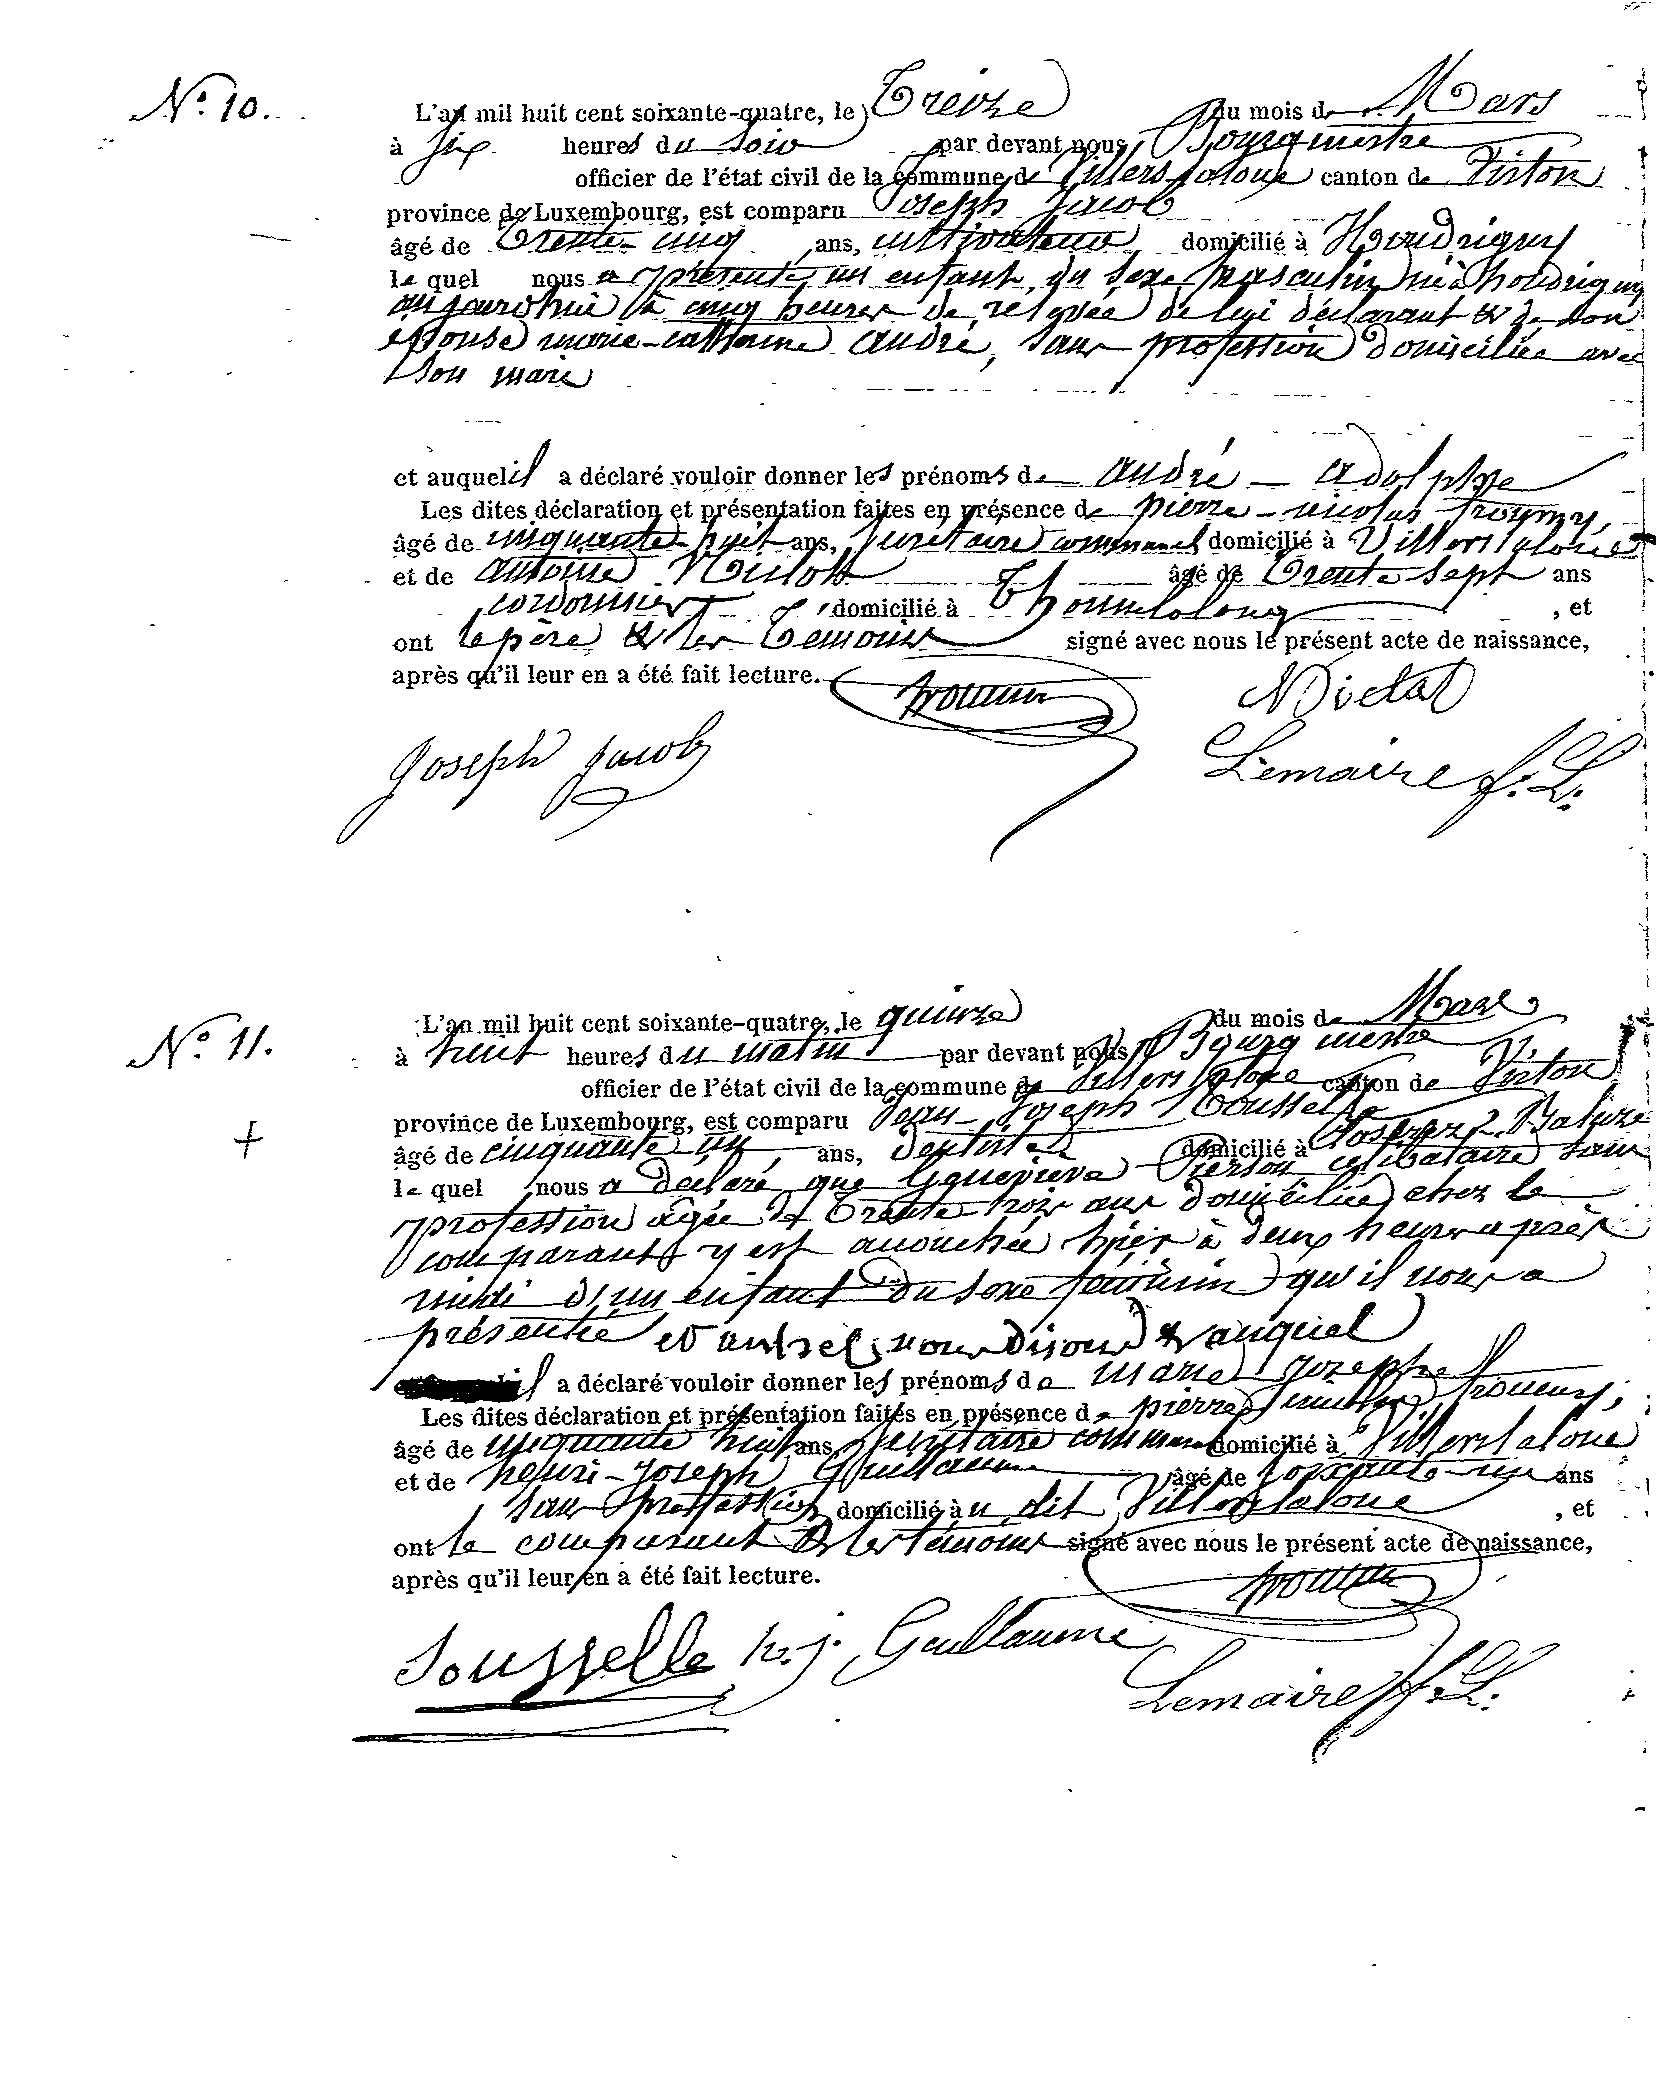 N° 10.
L'an mil huit cent soixante-quatre, le Treize du mois de Mars
à six heures du soir par devant nous Bourgmestre
officier de l'état civil de la commune de Villers laloue canton de Virton
province de Luxembourg, est comparu Joseph Jacob
âgé de Trente-cinq ans, cultivateur domicilié à Houdrigny
le quel nous a présenté un enfant du sexe masculin né à houdrigny
aujourdhui à cinq heures de relevée de lui déclarant & de son
épouse marie-catherine andré, sans profession domiciliée avec
son mari
et auquel il a déclaré vouloir donner les prénoms de andré - adolphe
Les dites déclaration et présentation faites en présence de pierre-nicolas
âgé de cinquante-huit ans, secrétaire communal domicilié à Villerslaloue
et de antoine âgé de Trente-sept ans
cordonnier domicilié à , et
ont le père & les Témoins signé avec nous le présent acte de naissance,
après qu'il leur en a été fait lecture.
Joseph Jacob
Lemaire f. L.
N° 11.
L'an mil huit cent soixante-quatre, le quinze du mois de Mars
à huit heures du matin par devant nous Bourgmestre
officier de l'état civil de la commune de Villers laloue canton de Virton
province de Luxembourg, est comparu Jean-Joseph Sousselle
âgé de cinquante un ans, dentiste domicilié à
le quel nous a déclaré que Geneviève Pierson célibataire sans
profession agée de Trente trois ans domiciliée chez le
comparant y est accouchée hier à deux heures après
midi d'un enfant du sexe féminin qu'il nous a
présenté et auquel, nous disons & auquel
il a déclaré vouloir donner les prénoms de marie Josephe
Les dites déclaration et présentation faites en présence de pierre
âgé de cinquante huit ans secrétaire communal domicilié à Villerslaloue
et de henri-Joseph Guillaume âgé de soixante-un ans
sans profession domicilié à u dit Villerslaloue , et
ont le comparant & les témoins signé avec nous le présent acte de naissance,
après qu'il leur en a été fait lecture.
Sousselle h. j. Guillaume
Lemaire f. L.